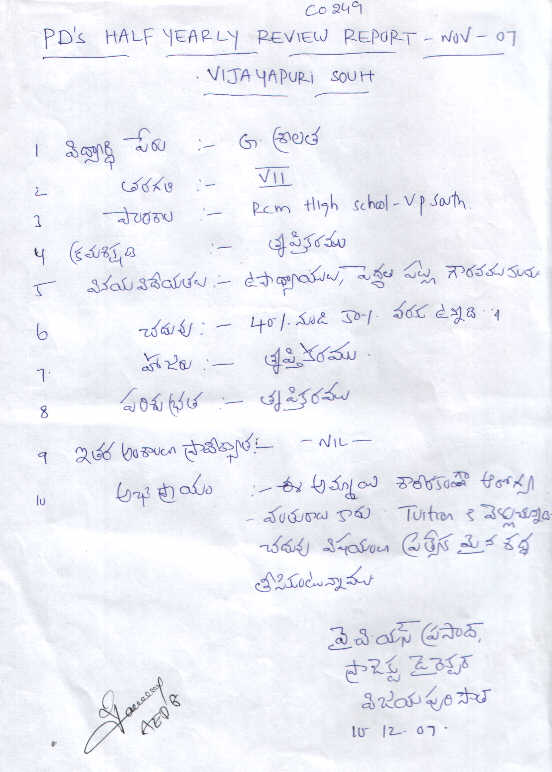 CO 249
PD's HALF YEARLY REVIEW REPORT - NOV - 07
VIJAYAPURI SOUTH
1 విద్యార్థి పేరు :- G. శ్రీలత
2 తరగతి :- VII
3 పాఠశాల :- Rcm High school - V.p south.
4 క్రమశిక్షణ :- తృప్తికరము
5 వినయవిధేయతలు :- ఉపాధ్యాయులు, పెద్దల పట్ల గౌరవము కలదు
6 చదువు :- 40% నుండి 50% వరకు ఉన్నది.
7. హాజరు :- తృప్తికరము.
8 పరిశుభ్రత :- తృప్తికరము
9 ఇతర అంశాలలో ప్రావీణ్యత :- - NIL -
10 అభిప్రాయం :- ఈ అమ్మాయి శారీరకంగా ఆరోగ్య
- వంతురాలు కాదు. Tuition కి వెళ్లుచున్నది
చదువు విషయంలో ప్రత్యేక మైన శ్రద్ధ
తీసుకుంటున్నాము
వై పి యస్ ప్రసాద్,
ప్రాజెక్టు డైరెక్టర్
విజయపురి సౌత్
10 12. 07.
AED 8